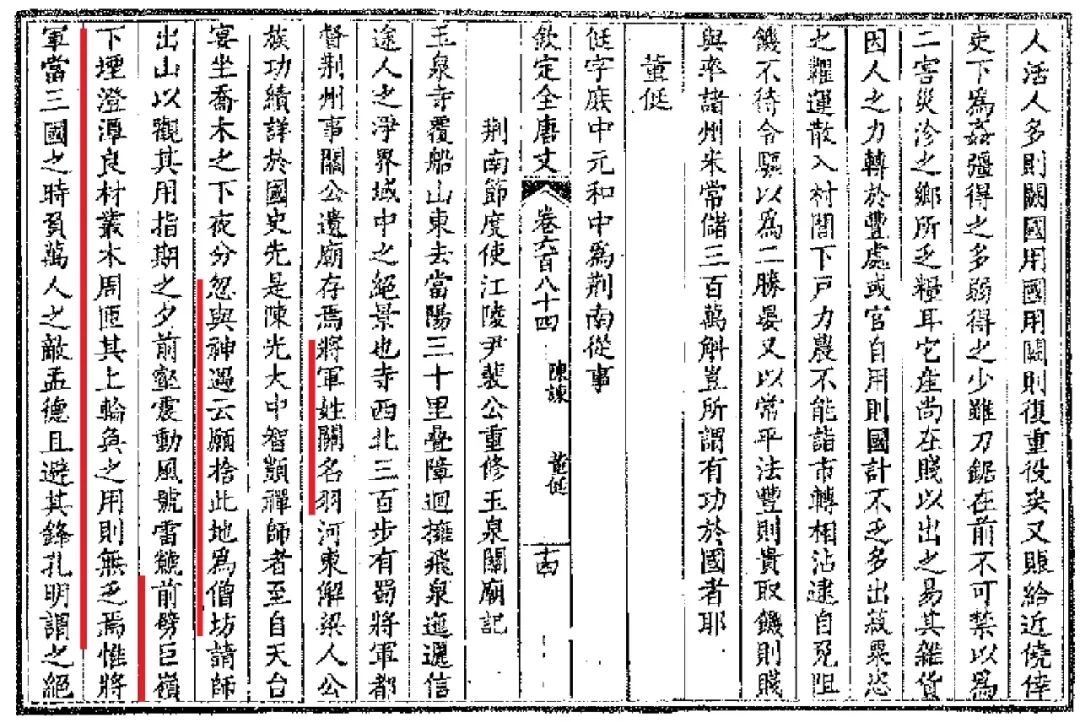 人活人多則闕國用國用闕則復重役矣又賑給近僥倖
吏下爲姦彊得之多弱得之少雖刀鋸在前不可禁以爲
二害災沴之鄉所乏糧耳它產尚在賤以出之易其雜貨
因人之力轉於豐處或官自用則國計不乏多出菽粟恣
之糶運散入村閭下戶力農不能詣市轉相沾逮自免阻
饑不待令驅以爲二勝晏又以常平法豐則貴取饑則賤
與率諸州米常儲三百萬斛豈所謂有功於國者耶
董侹
侹字庶中元和中爲荆南從事
欽定全唐文 卷六百八十四 陳諫 董侹 十四
荆南節度使江陵尹裴公重修玉泉關廟記
玉泉寺覆船山東去當陽三十里疊障迴擁飛泉迤邐信
途人之淨界域中之絕景也寺西北三百步有蜀將軍都
督荆州事關公遺廟存焉將軍姓關名羽河東解梁人公
族功績詳於國史先是陳光大中智顗禪師者至自天台
宴坐喬木之下夜分忽與神遇云願捨此地爲僧坊請師
出山以觀其用指期之夕前壑震動風號雷虩前劈巨嶺
下堙澄潭良材叢木周匝其上輪奐之用則無乏焉惟將
軍當三國之時負萬人之敵孟德且避其鋒孔明謂之絕